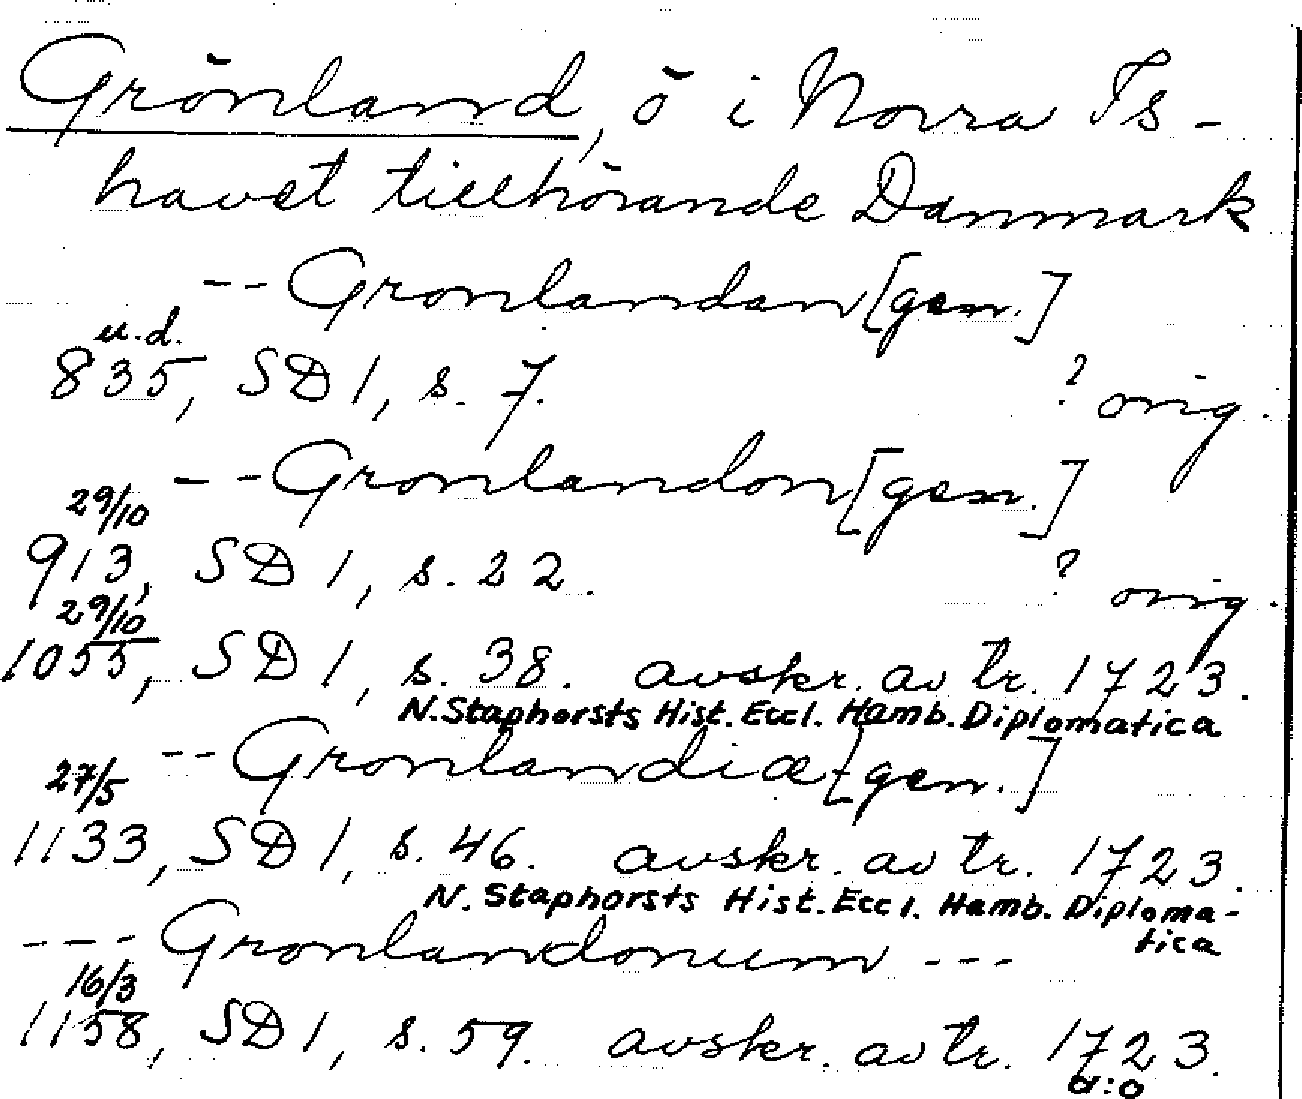 Grönland, ö i Norra Is-
havet tillhörande Danmark
-- Gronlandan [gen.]
u.d.
835, SD 1, s. 7. ? orig.
-- Gronlandon [gen.]
29/10
913, SD 1, s. 22. ? orig.
29/10
1055, SD 1, s. 38. avskr. av tr. 1723.
N. Staphorsts Hist. Eccl. Hamb. Diplomatica
-- Gronlandiæ [gen.]
27/5
1133, SD 1, s. 46. avskr. av tr. 1723.
N. Staphorsts Hist. Eccl. Hamb. Diploma-
tica
--- Gronlandonum ---
16/3
1158, SD 1, s. 59. avskr. av tr. 1723.
a:o